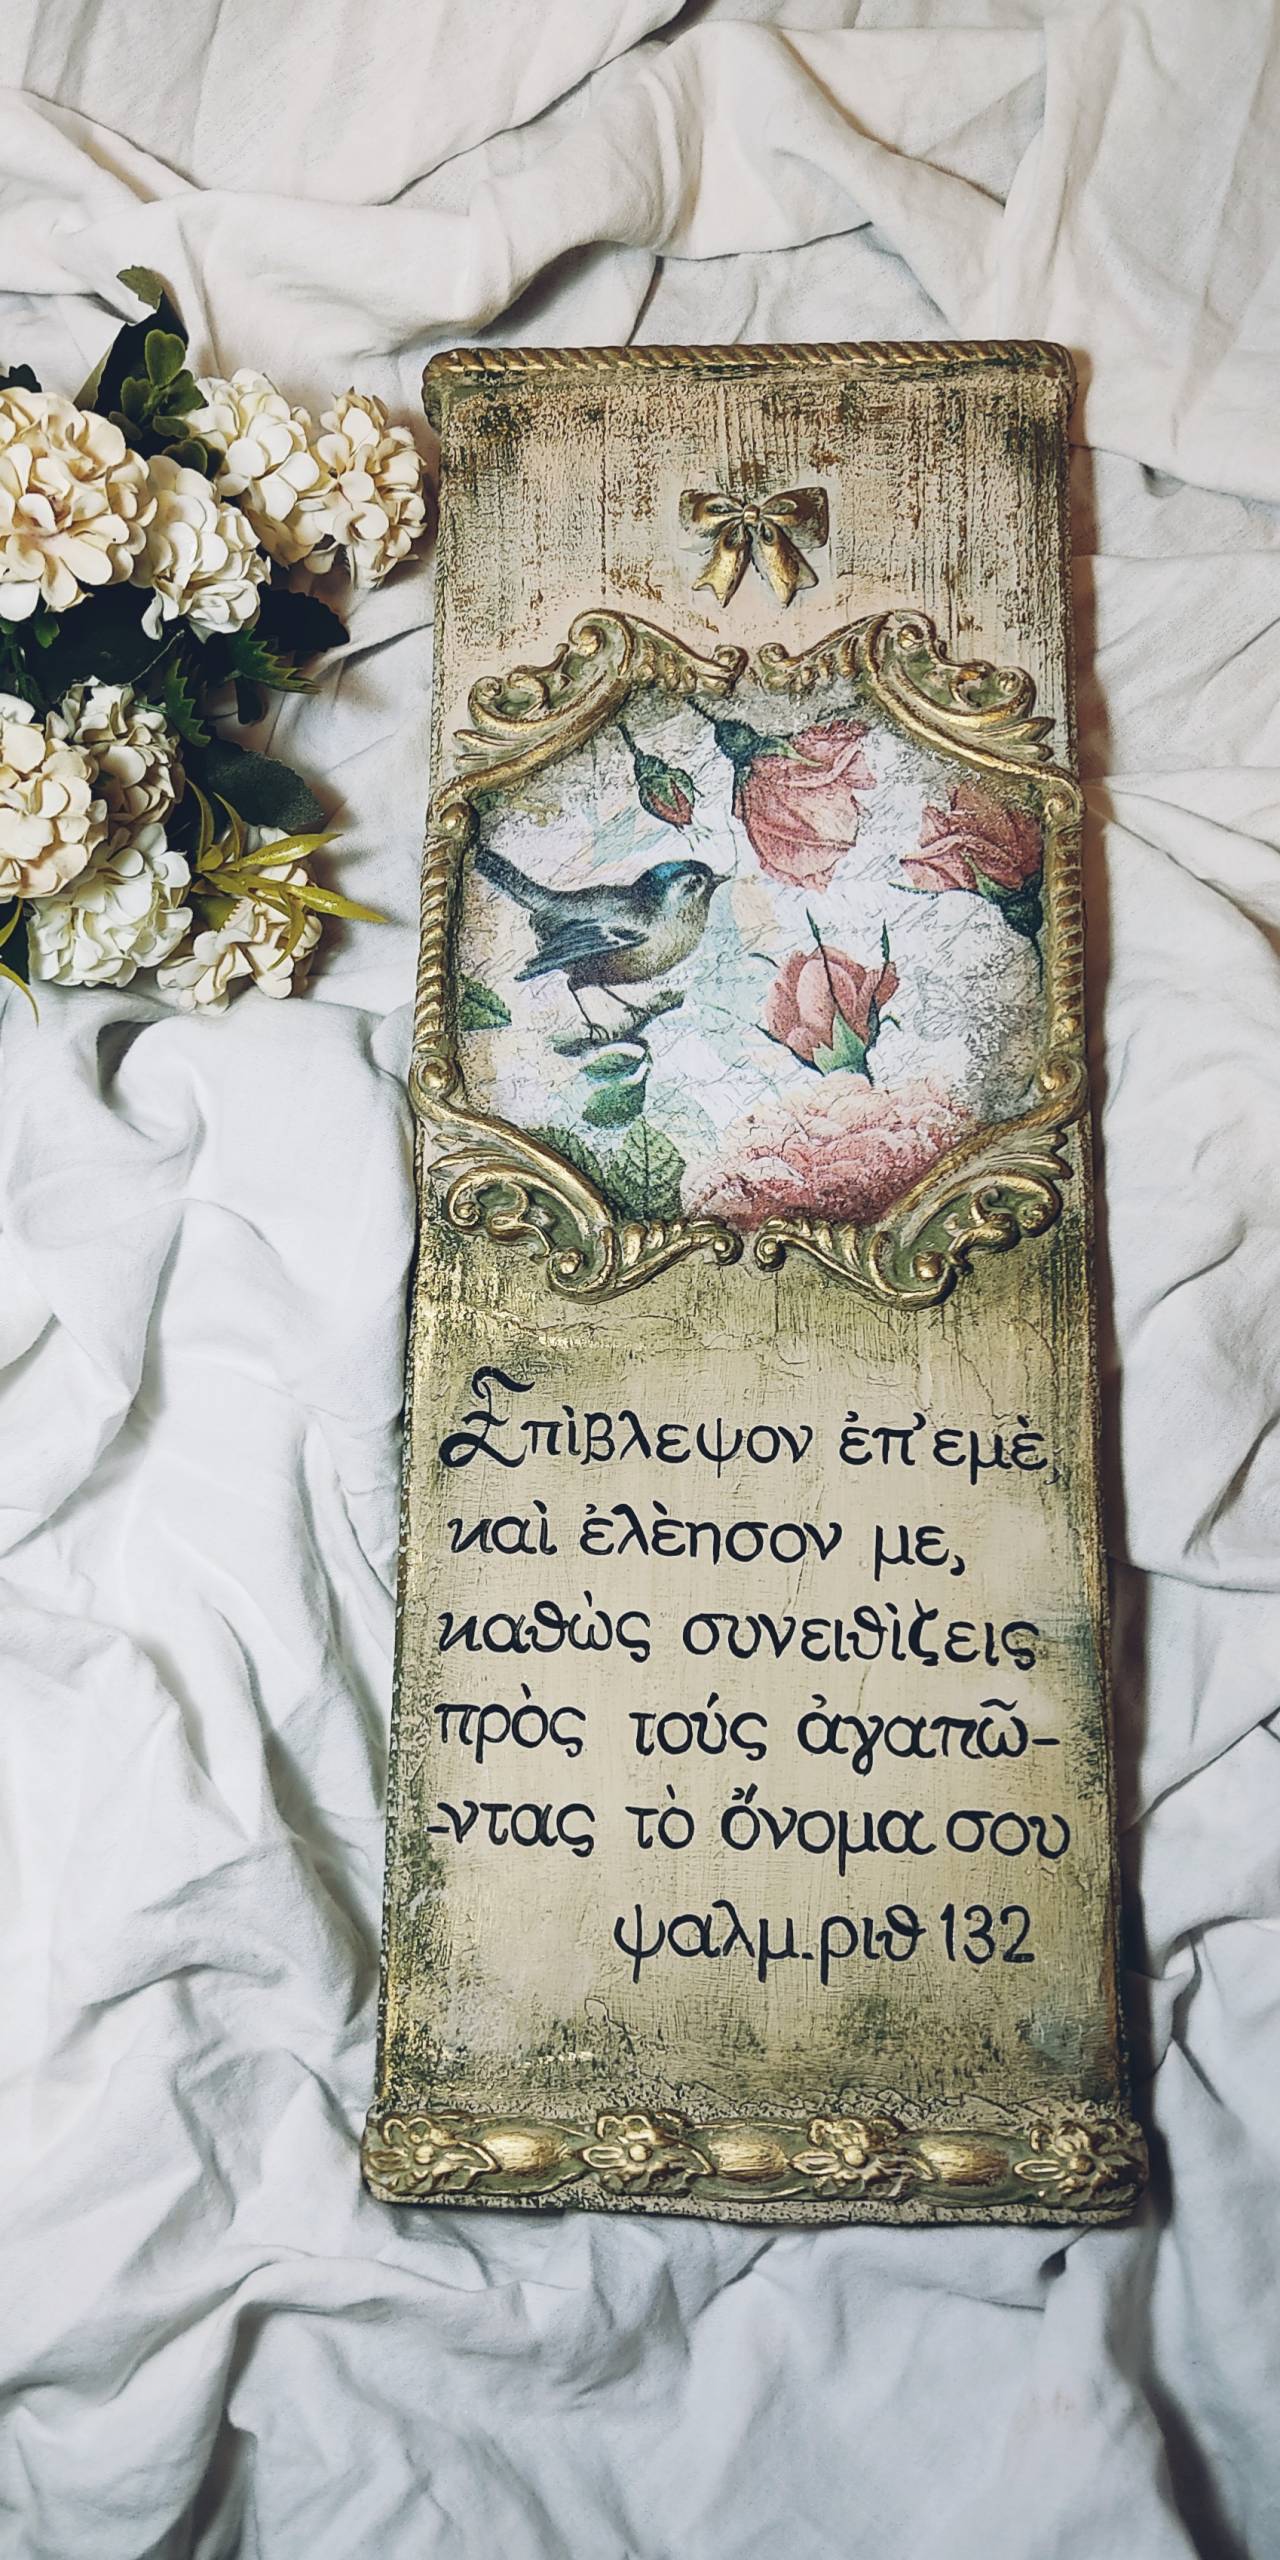 Ἐπὶβλεψον ἐπ' εμὲ,
καὶ ἐλὲησον με,
καθὼς συνειθὶζεις
πρὸς τούς ἀγαπῶ-
-ντας τὸ ὄνομα σου
ψαλμ.ριθ 132